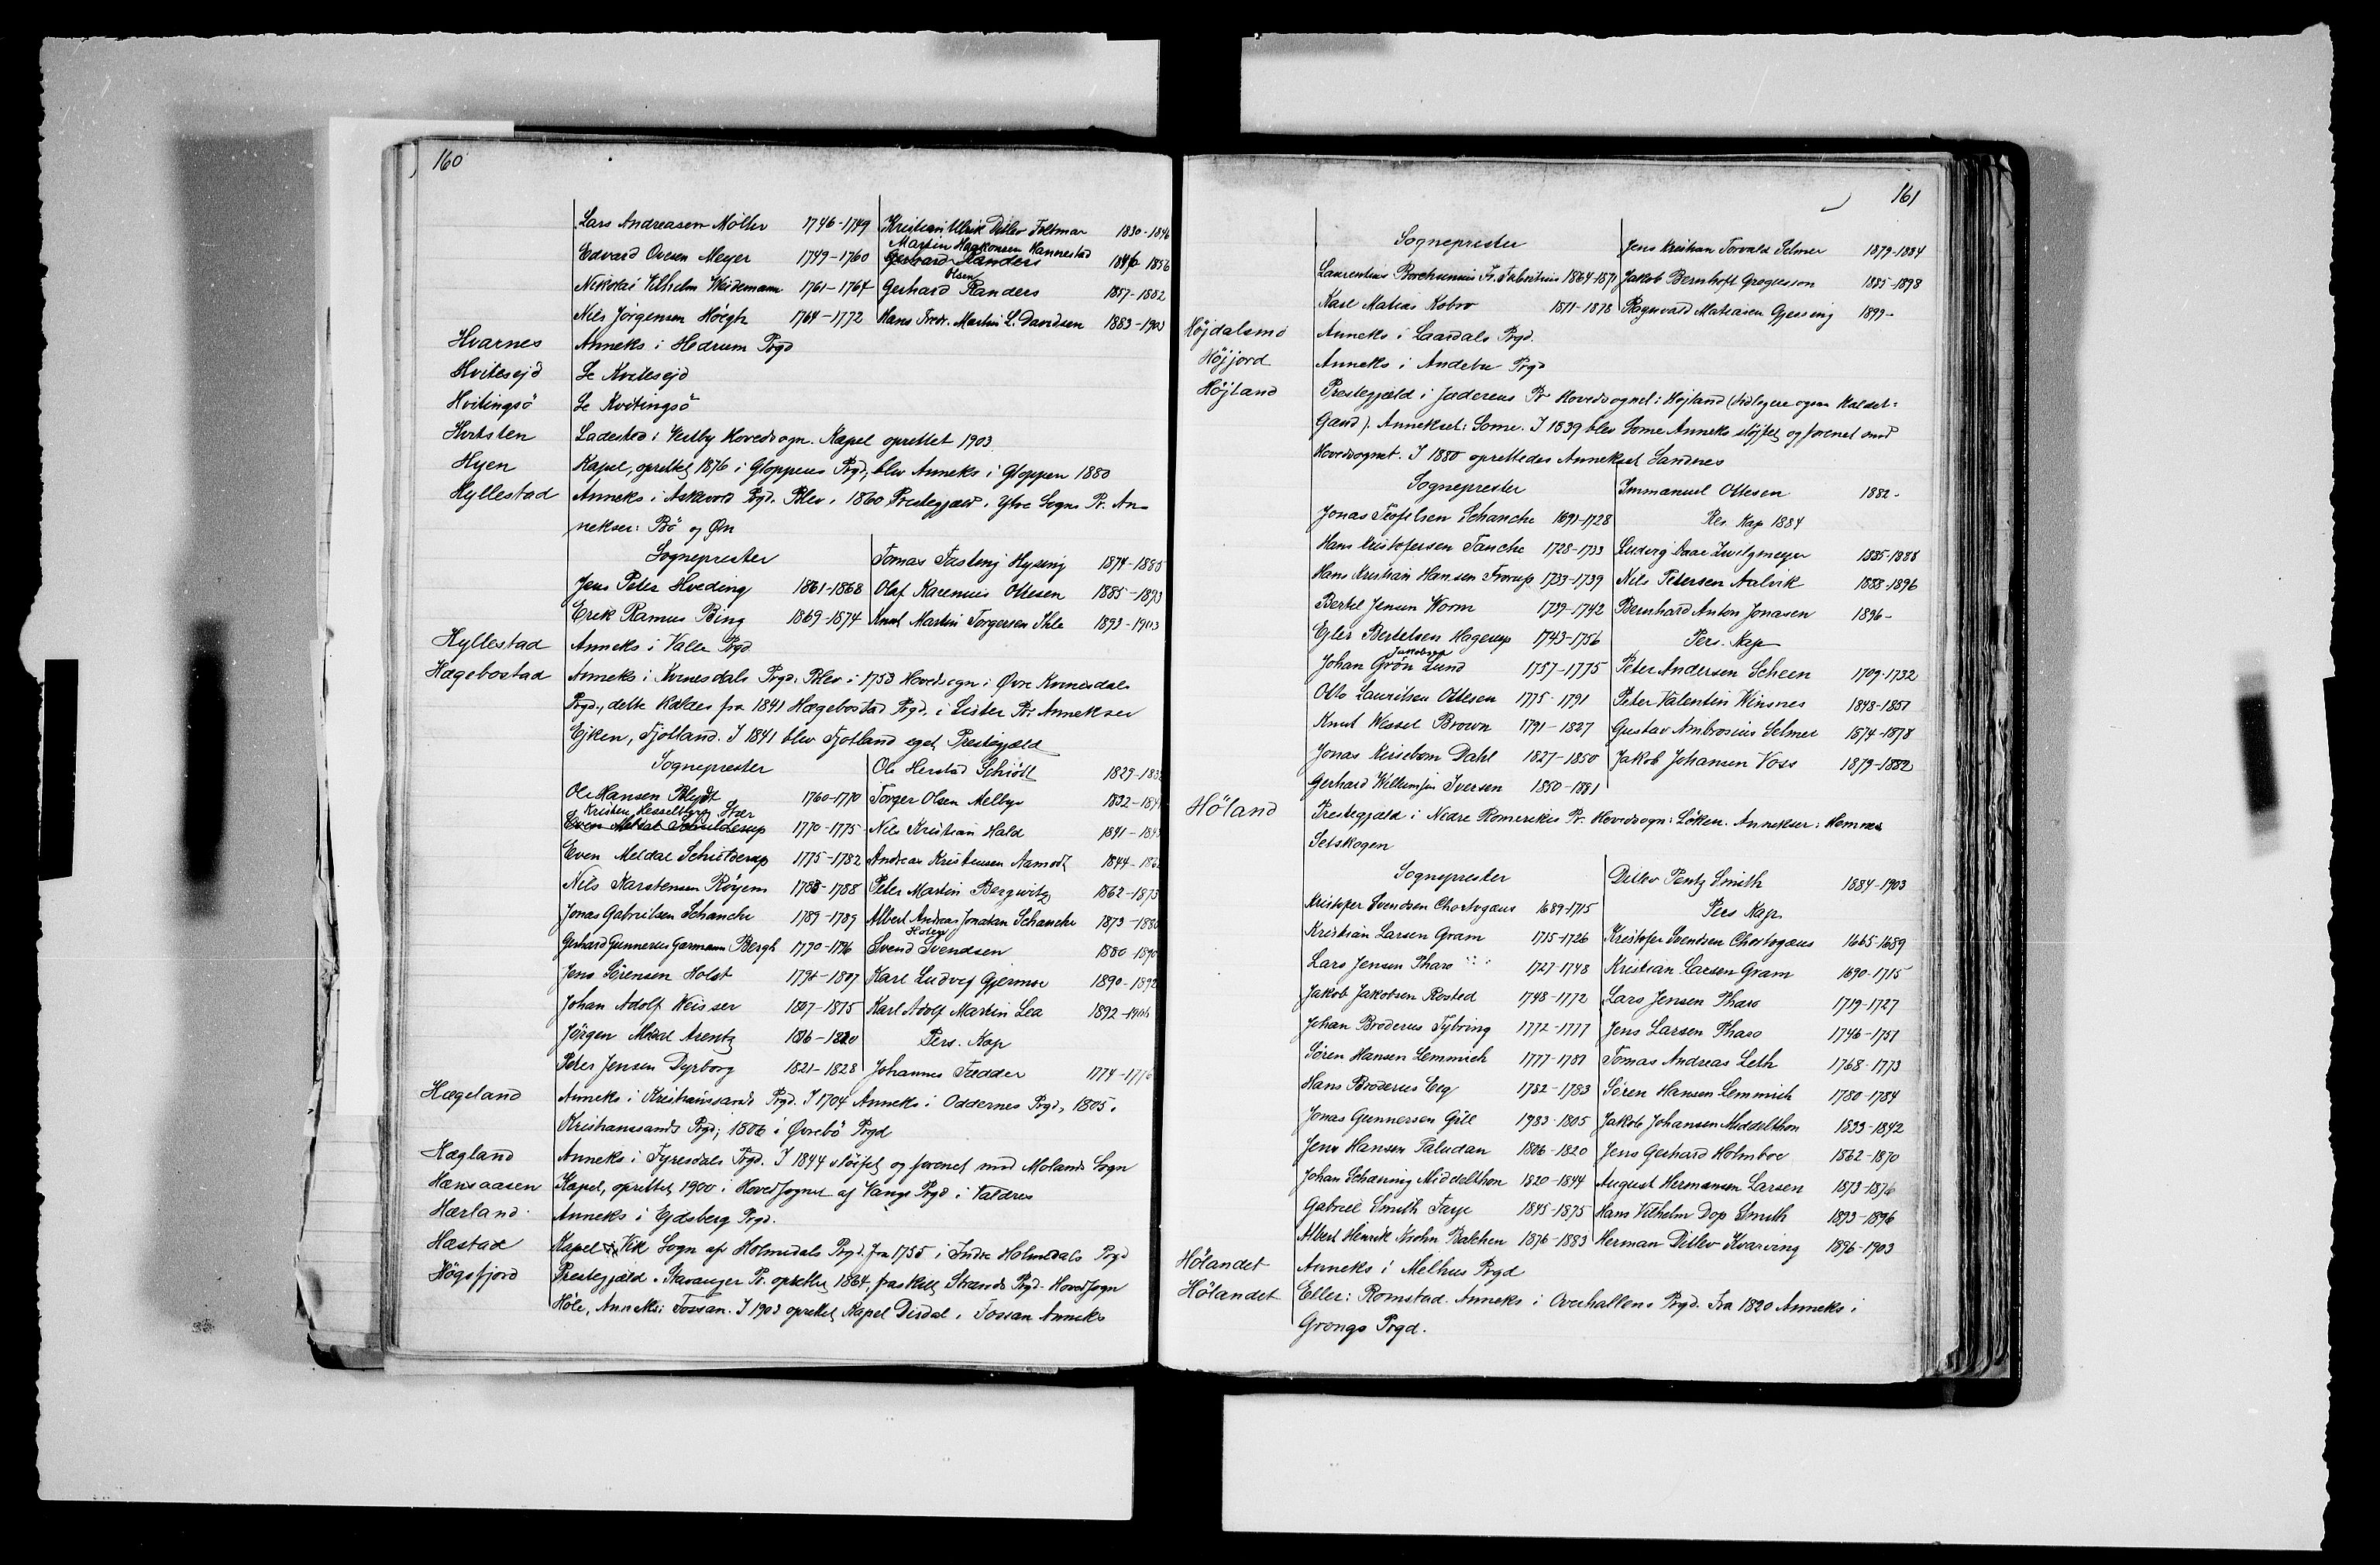 160
Lars Andreasen Möller 1746-1749 Kristian Ulrik Detlev Foltmar 1830-1846
Martin Haakonsen Hannestad
Edvard Ovesen Meyer 1749-1760 Gerhard Randers 1846-1856
Olsen
Nikolai Vilhelm Weidemann 1761-1764 Gerhard Randers 1857-1882
Nils Jörgensen Höegh 1764-1772 Hans Fredr. Martin L. Davidsen 1883-1903
Hvarnes Anneks i Hedrum Prgd
Hvitesejd Se Kvitesejd
Hvitingsö Se Kvitingsö
Hvitsten Ladested i Vestby Hovedsogn. Kapel oprettet 1903
Hyen Kapel, oprettet 1876 i Gloppens Prgd, blev Anneks i Gloppen 1880
Hyllestad Anneks i Askevold Prgd. Blev i 1860 Prestegjæld i Ytre Sogns Pr. An-
nekser: Bö og Øn
Sogneprester Tomas Fasting Hysing 1874-1885
Jens Peter Hveding 1861-1868 Olaf Karenius Ottesen 1885-1893
Erik Ramus Bing 1869-1874 Knut Martin Torgersen Ihle 1893-1903
Hyllestad Anneks i Valle Prgd
Hægebostad Anneks i Kvinesdals Prgd. Blev i 1753 Hovedsogn i Øvre Kvinesdals
Prgd., dette kaldes fra 1841 Hægebostad Prgd. i Lister Pr. Annekser
Ejken, Fjotland. I 1841 blev Fjotland eget Prestegjæld
Sogneprester Ole Herstad Schiött 1829-183
Ole Hansen Blydt 1760-1770 Torger Olsen Melbye 1832-184
Kristen Hesselberg Stær
Even Meldal Schielderup 1770-1775 Nils Kristian Hald 1841-184
Even Meldal Schielderup 1775-1782 Andreas Kristensen Aamodt 1844-186
Nils Karstensen Röyem 1783-1788 Peter Martin Bergwitz 1862-1873
Jonas Gabrielsen Schanche 1789-1789 Albert Andreas Jonatan Schanche 1873-1880
Holen
Gerhard Gunnerus Garmann Bergh 1790-1796 Svend Svendsen 1880-1890
Jens Sörensen Holst 1797-1807 Karl Ludvig Gjermoe 1890-1892
Johan Adolf Weisser 1807-1815 Karl Adolf Martin Lea 1892-1906
Jörgen Meldal Arentz 1816-1820 Pers. Kap
Peter Jensen Dyrborg 1821-1828 Johannes Tædder 1774-1776
Hægeland Anneks i Kristianssands Prgd. I 1704 Anneks i Oddernes Prgd, 1805 i
Kristianssands Prgd; 1806 i Øvrebö Prgd
Hægland Anneks i Fyresdals Prgd. I 1844 slöifet og forenet med Molands Sogn
Hænsaasen Kapel, oprettet 1900 i Hovedsognet af Vangs Prgd i Valdres
Hærland Anneks i Ejdsberg Prgd.
Hæstad Kapel Vik Sogn af Holmedals Prgd. fra 1755 i Indre Holmedals Prgd
Högsfjord Prestegjæld i Stavanger Pr. oprettet 1864, fraskilt Strands Prgd. Hovedsogn
Höle, Anneks: Fossan. I 1903 oprettet Kapel Dirdal i Fossan Anneks
161
Sogneprester Jens Kristian Torvald Selmer 1879-1884
Laurentius Borchsenius Fr. Fabritius 1864-1871 Jakob Bernhoft Gregusson 1885-1898
Karl Matias Kobro 1871-1878 Ragnvald Matiasen Gjessing 1899-
Höjdalsmo Anneks i Laardals Prgd.
Höjjord Anneks i Andebu Prgd
Höjland Prestegjæld i Jæderens Pr Hovedsognet: Höjland (tidligere ogsaa kaldet
Gand). Annekset: Some. I 1839 blev Some Anneks slöjfet og forenet med
Hovedsognet. I 1880 oprettedes Annekset Sandnes
Sogneprester Immanuel Ottesen 1882-
Jonas Teofilsen Schanche 1691-1728 Res. Kap 1884
Hans Kristofersen Tanche 1728-1733 Ludvig Daae Zwilgmeyer 1885-1888
Hans Kristian Hansen Trorup 1733-1739 Nils Petersen Aalvik 1888-1896
Bertel Jensen Worm 1739-1742 Bernhard Anton Jonasen 1896-
Ejler Bertelsen Hagerup 1743-1756 Pers. Kap
Jakobsen
Johan Grön Lund 1757-1775 Peter Andersen Scheen 1709-1732
Otto Lauritsen Ottesen 1775-1791 Peter Valentin Winsnes 1848-1851
Knut Wessel Brown 1791-1827 Gustav Ambrosius Selmer 1874-1878
Jonas Kirsebom Dahl 1827-1850 Jakob Johansen Voss 1879-1882
Gerhard Willumsen Iversen 1850-1881
Höland Prestegjæld i Nedre Romerikes Pr. Hovedsogn: Löken. Annekser: Hemnes
Setskogen
Sogneprester Ditlev Pentz Smith 1884-1903
Kristofer Svendsen Chortogæus 1689-1715 Pers Kap
Kristian Larsen Gram 1715-1726 Kristofer Svendsen Chortogæus 1665-1689
Lars Jensen Pharo 1727-1748 Kristian Larsen Gram 1690-1715
Jakob Jakobsen Rosted 1748-1772 Lars Jensen Pharo 1719-1727
Johan Broderus Tybring 1772-1777 Jens Larsen Pharo 1746-1751
Sören Hansen Lemmich 1777-1781 Tomas Andreas Leth 1768-1773
Hans Broderus Eeg 1782-1783 Sören Hansen Lemmich 1780-1784
Jonas Gunnersen Gill 1783-1805 Jakob Johansen Middelthon 1833-1842
Jens Hansen Paludan 1806-1820 Jens Gerhard Holmboe 1862-1870
Johan Scharning Middelthon 1820-1844 August Hermansen Larsen 1873-1876
Gabriel Smith Faye 1845-1875 Hans Vilhelm Dop Smith 1893-1896
Albert Henrik Krohn Balchen 1876-1883 Herman Ditlev Kvarving 1896-1903
Hölandet Anneks i Melhus Prgd
Hölandet Eller: Romstad. Anneks i Overhallens Prgd. Fra 1820 Anneks i
Grongs Prgd.